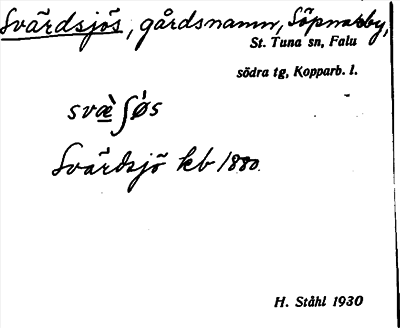 Svärdsjös, gårdsnamn, Söpnarby,
St. Tuna sn, Falu
södra tg, Kopparb. l.
svæ̀ʃǿs
Svärdsjö kb 1880.
H. Ståhl 1930